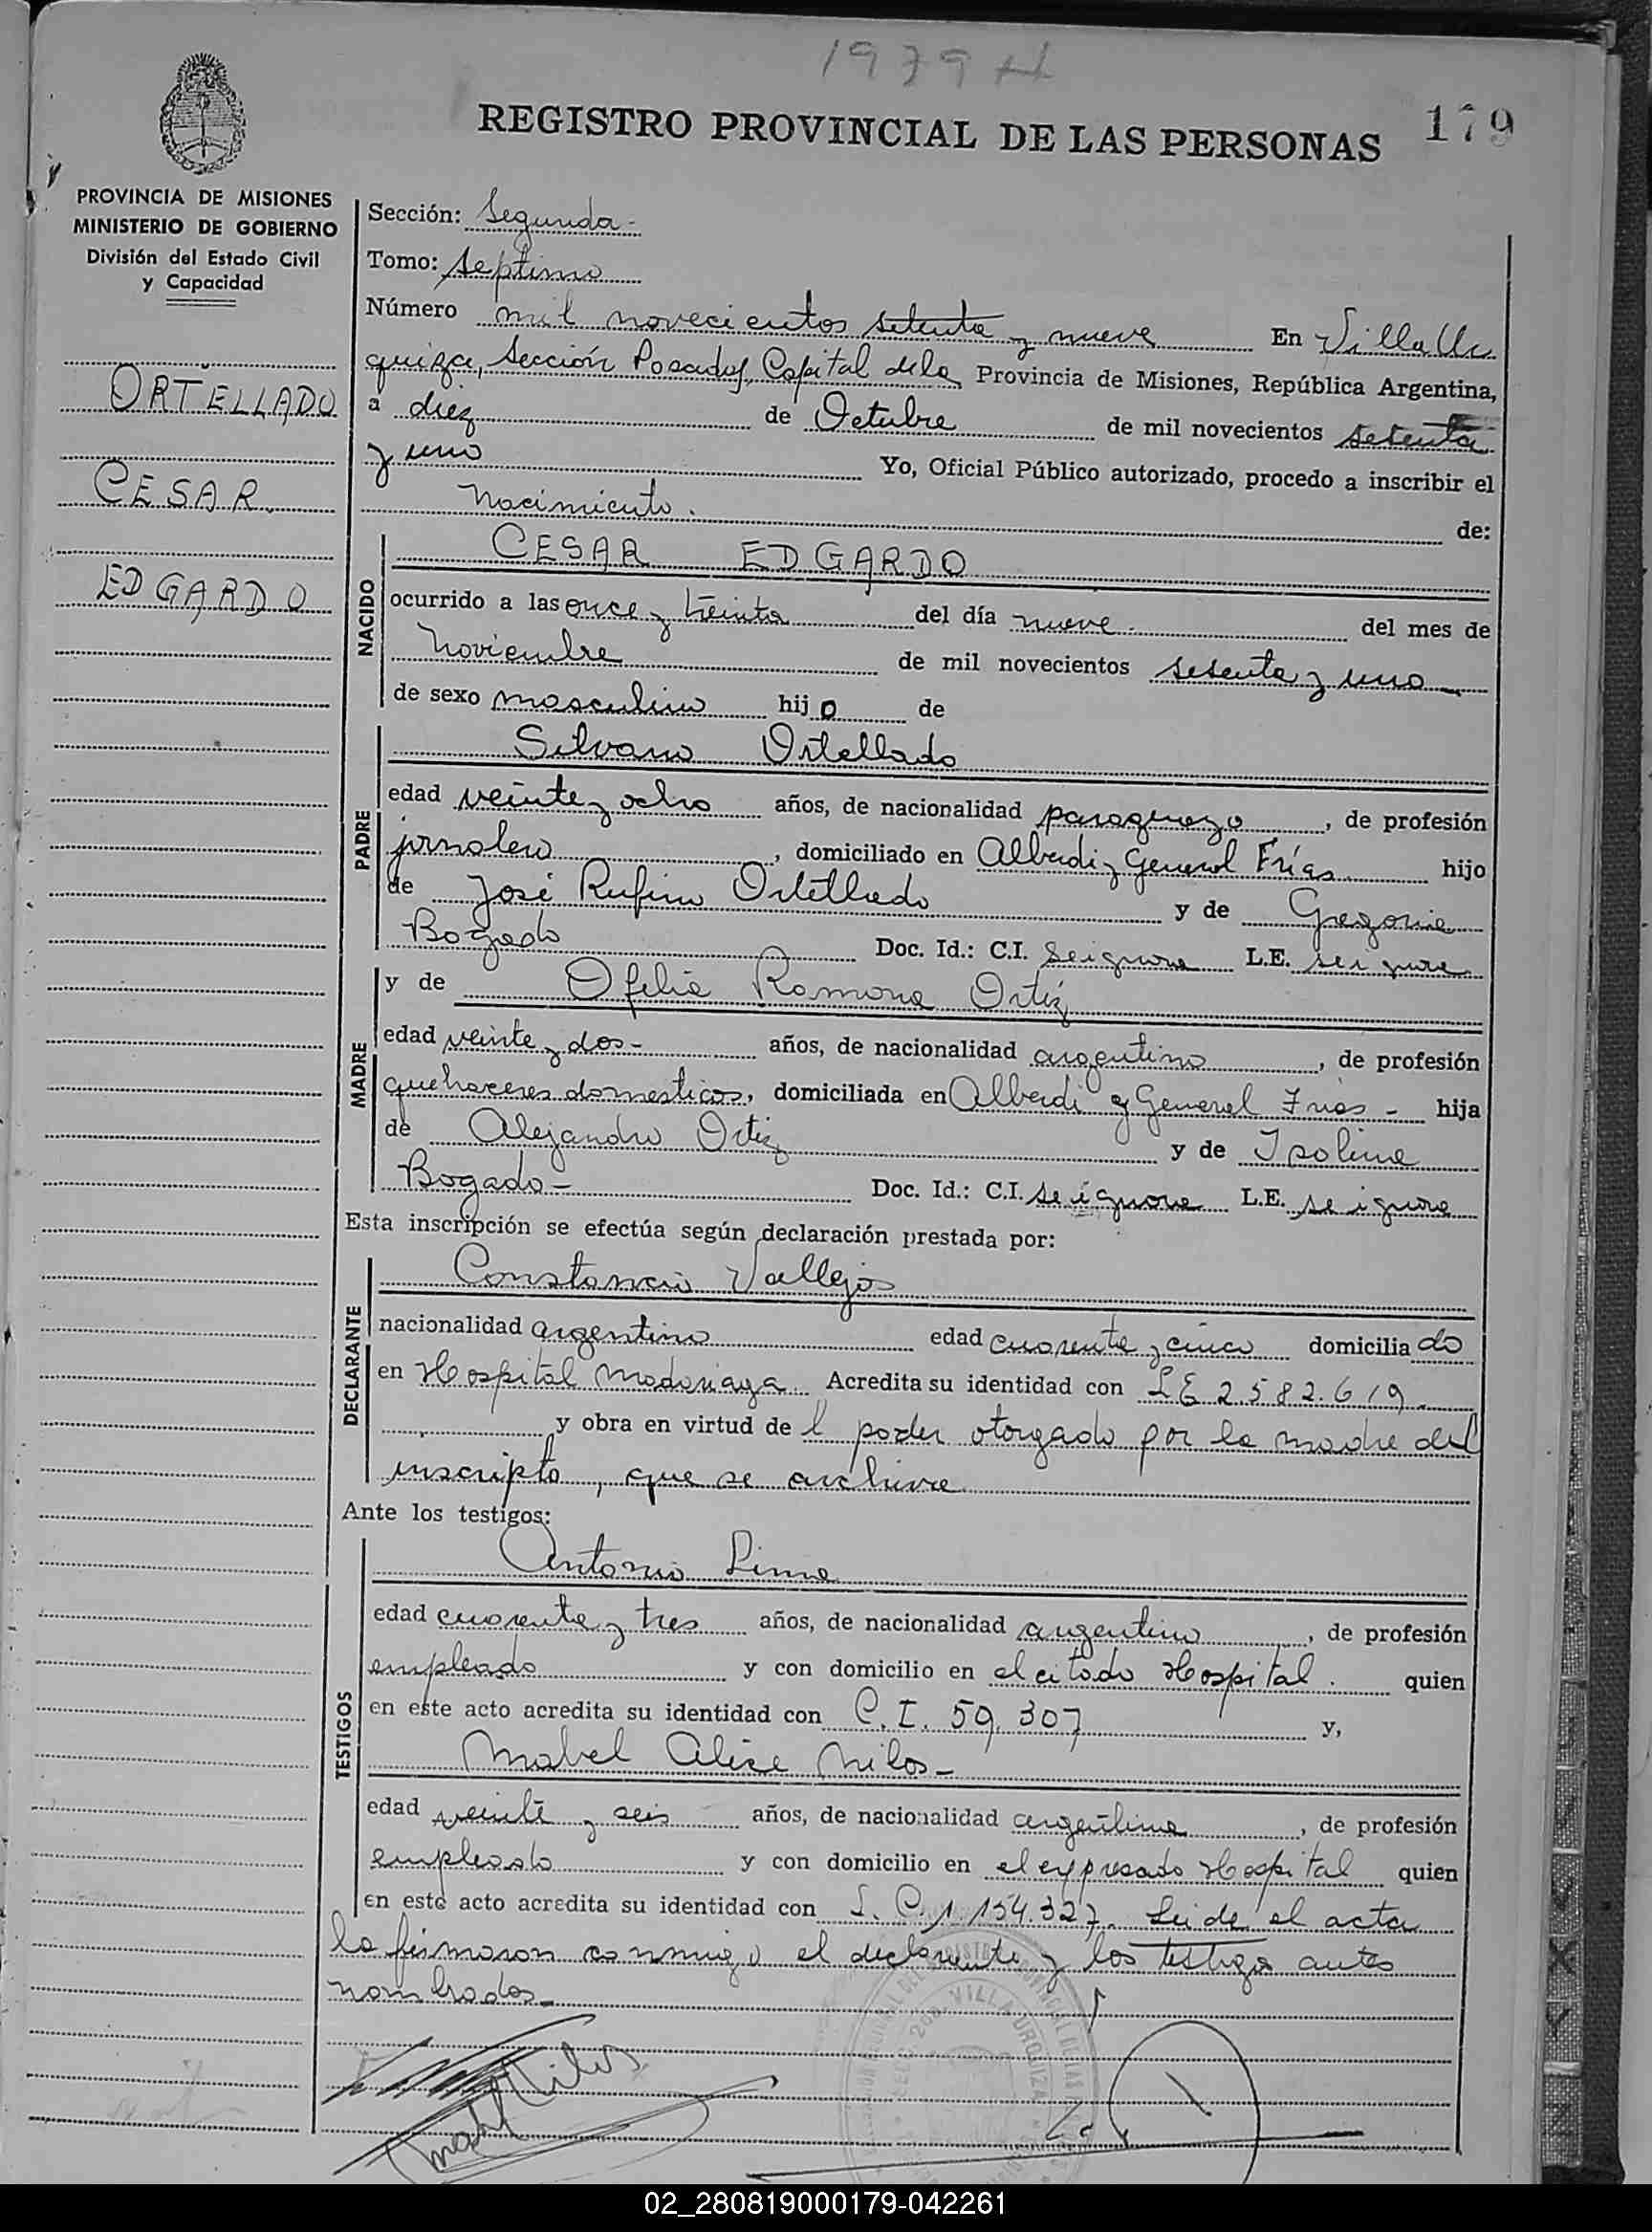 1979 H
REGISTRO PROVINCIAL DE LAS PERSONAS 179
PROVINCIA DE MISIONES
MINISTERIO DE GOBIERNO
División del Estado Civil
y Capacidad
ORTELLADO
CESAR
EDGARDO
Sección: Segunda-
Tomo: septimo
Número mil novecientos setenta y nueve En Villa Ur
quiza, Sección Posadas, Capital dela Provincia de Misiones, República Argentina,
a diez de Octubre de mil novecientos setenta
y uno Yo, Oficial Público autorizado, procedo a inscribir el
Nacimiento. de:
NACIDO
CESAR EDGARDO
ocurrido a las once y treinta del día nueve del mes de
Noviembre de mil novecientos setenta y uno
de sexo masculino hijo de
PADRE
Silvano Ortellado
edad veinte y ocho años, de nacionalidad paraguayo, de profesión
jornalero, domiciliado en Alberdi y General Frías hijo
de José Rufino Ortellado y de Gregoria
Bogado Doc. Id.: C.I. se ignora L.E. se ignora
MADRE
y de Ofelia Ramona Ortiz
edad veinte y dos- años, de nacionalidad argentina, de profesión
quehaceres domesticos, domiciliada en Alberdi y General Frías - hija
de Alejandro Ortiz y de Isolina
Bogado- Doc. Id.: C.I. se ignora L.E. se ignora
Esta inscripción se efectúa según declaración prestada por:
DECLARANTE
Constancio Vallejos
nacionalidad argentino edad cuarenta y cinco domiciliado
en Hospital Madariaga Acredita su identidad con LE 2.582.619.
y obra en virtud de l poder otorgado por la madre del
inscripto, que se archiva
Ante los testigos:
TESTIGOS
Antonio Lima
edad cuarenta y tres años, de nacionalidad argentino, de profesión
empleado y con domicilio en el citado Hospital. quien
en este acto acredita su identidad con C.I. 59.307 y,
Mabel Alice Milos-
edad veinte y seis años, de nacionalidad argentina, de profesión
empleada y con domicilio en el expresado Hospital quien
en este acto acredita su identidad con L.C. 1.154.327. Leida el acta
la firmaron conmigo el declarante y los testigos antes
nombrados-
02_280819000179-042261